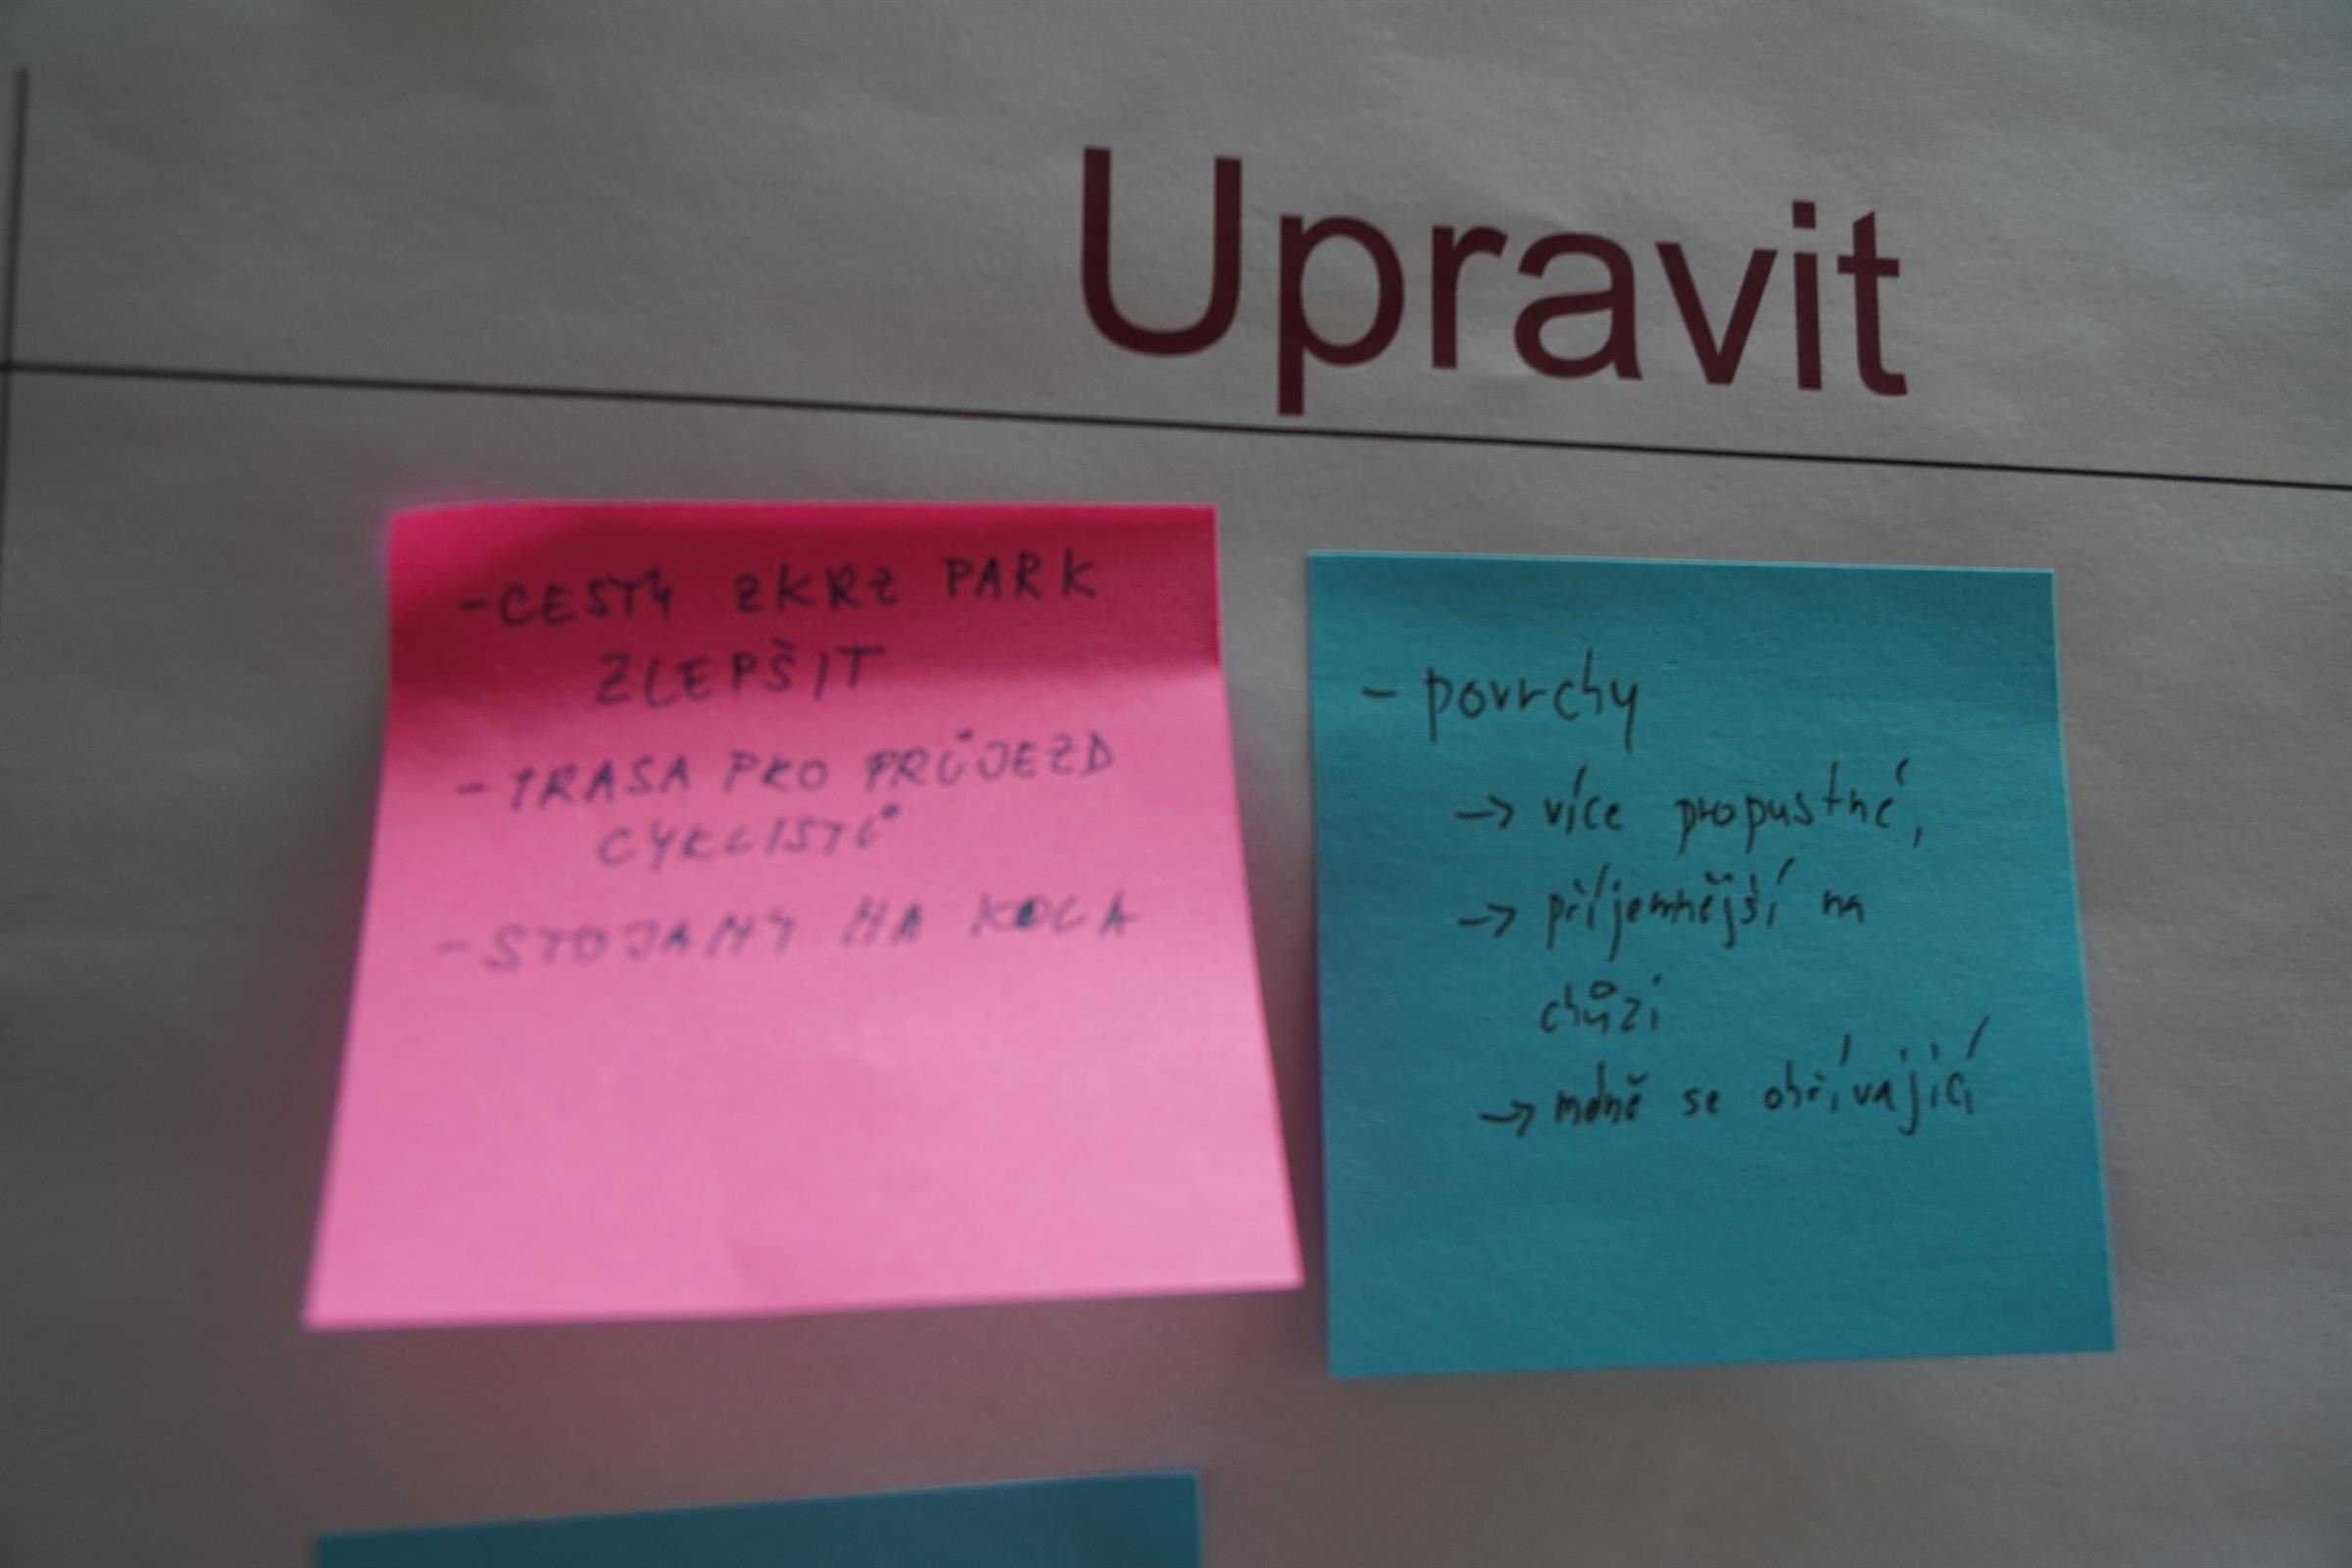 Upravit
- CESTY ZKRZ PARK
ZLEPŠIT
- TRASA PRO PRŮJEZD
CYKLISTŮ
- STOJANY NA KOLA
- povrchy
→ více propustné,
→ příjemnější na
chůzi
→ méně se ohřívající